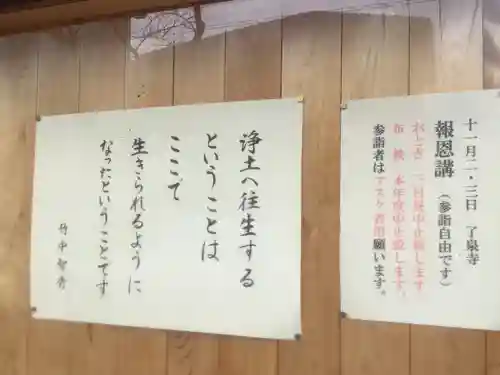 十一月二・三日 了泉寺
報恩講(参詣自由です)
おとき 二日共中止致します
布教 本年度中止致します。
参詣者はマスク着用願います。
浄土へ往生する
ということは
ここで
生きられるように
なったということです
竹中智秀